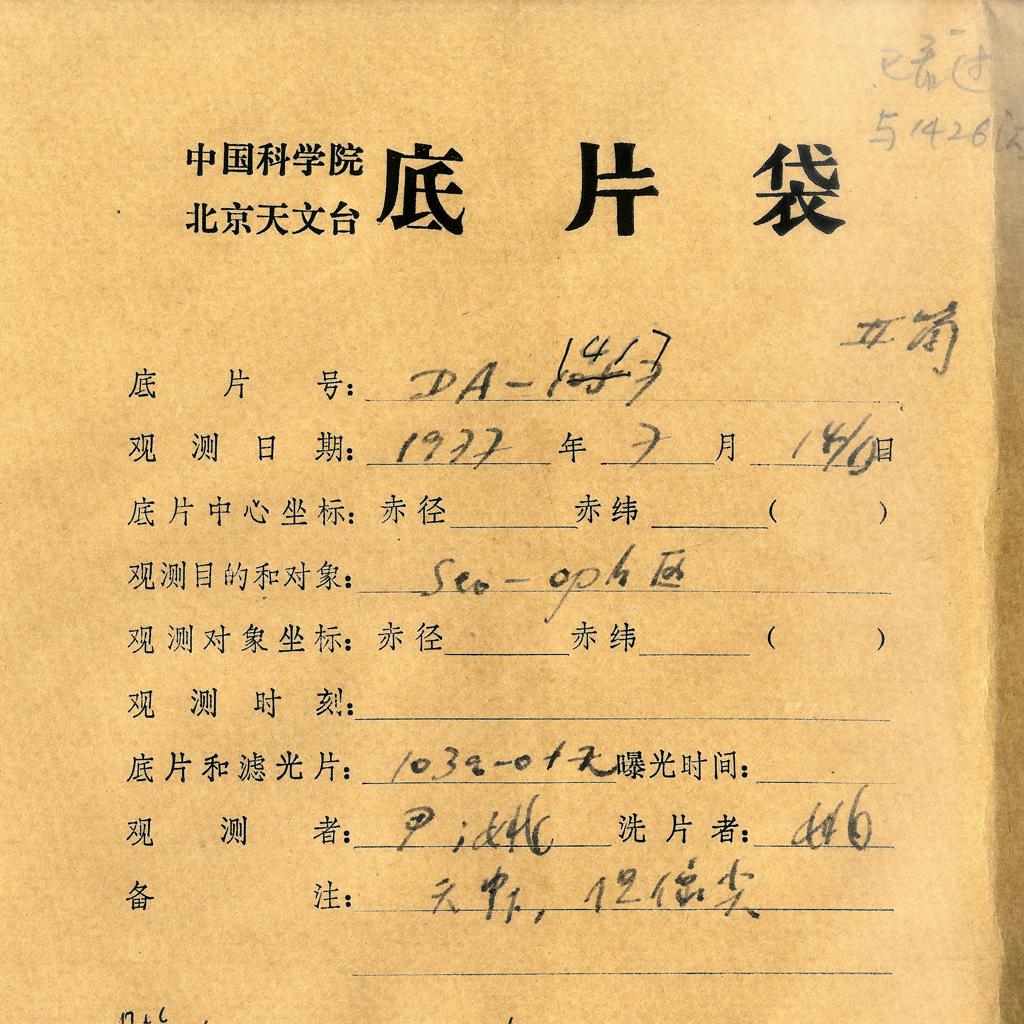 已看过
与1426
中国科学院
北京天文台
底片袋
底片号: DA-1417
观测日期: 1977年7月18/19日
底片中心坐标: 赤径 赤纬 ( )
观测目的和对象: Sco-oph区
观测对象坐标: 赤径 赤纬 ( )
观测时刻:
底片和滤光片: 103a-O+无 曝光时间:
观测者: 洗片者:
备注: 但